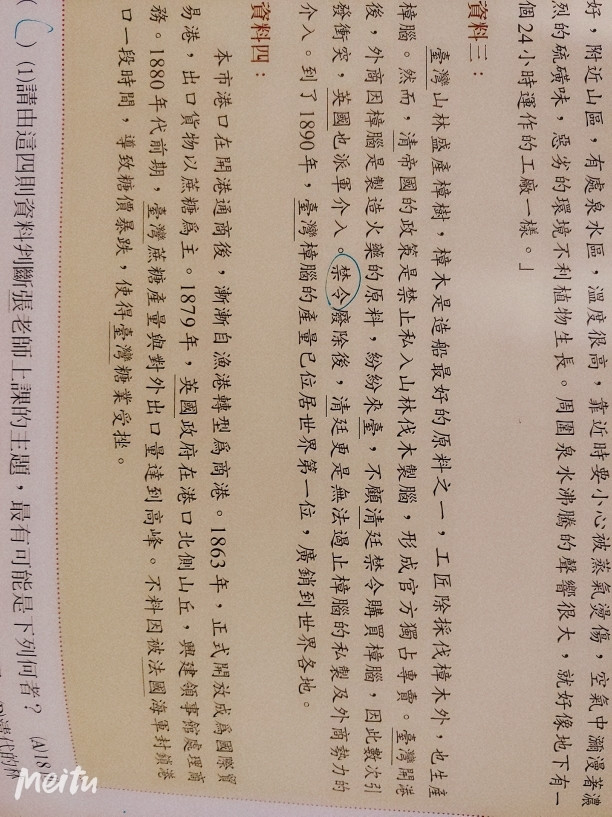 好，附近山區，有處泉水區，溫度很高，靠近時要小心被蒸氣燙傷，空氣中瀰漫著濃
烈的硫磺味，惡劣的環境不利植物生長。周圍泉水沸騰的聲響很大，就好像地下有一
個24小時運作的工廠一樣。」
資料三：
臺灣山林盛產樟樹，樟木是造船最好的原料之一，工匠除採伐樟木外，也生產
樟腦。然而，清帝國的政策是禁止私入山林伐木製腦，形成官方獨占專賣。臺灣開港
後，外商因樟腦是製造火藥的原料，紛紛來臺，不顧清廷禁令購買樟腦，因此數次引
發衝突，英國也派軍介入。禁令廢除後，清廷更是無法遏止樟腦的私製及外商勢力的
介入。到了1890年，臺灣樟腦的產量已位居世界第一位，廣銷到世界各地。
資料四：
本市港口在開港通商後，漸漸自漁港轉型為商港。1863年，正式開放成為國際貿
易港，出口貨物以蔗糖為主。1879年，英國政府在港口北側山丘，興建領事館處理商
務。1880年代前期，臺灣蔗糖產量與對外出口量達到高峰。不料因被法國海軍封鎖港
口一段時間，導致糖價暴跌，使得臺灣糖業受挫。
(C) (1)請由這四則資料判斷張老師上課的主題，最有可能是下列何者？ (A)18
Meitu